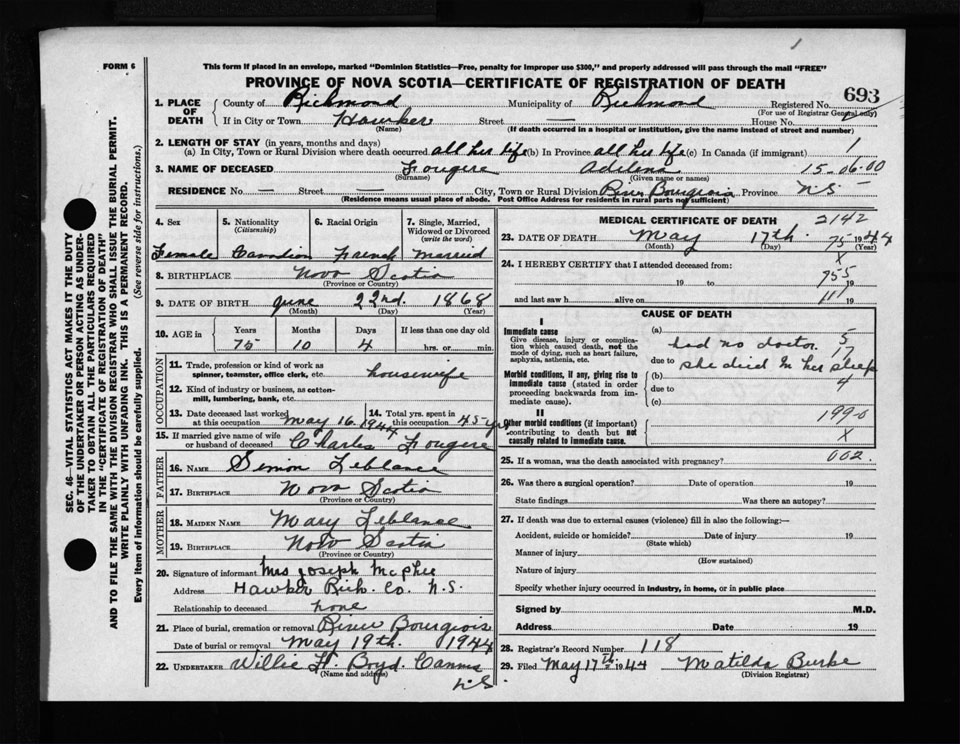 1
FORM 6
This form if placed in an envelope, marked "Dominion Statistics—Free, penalty for improper use $300," and properly addressed will pass through the mail "FREE"
PROVINCE OF NOVA SCOTIA—CERTIFICATE OF REGISTRATION OF DEATH
693
1. PLACE OF DEATH County of Richmond Municipality of Richmond Registered No.
(For use of Registrar General only)
If in City or Town Hawker Street — House No.
(Name) (If death occurred in a hospital or institution, give the name instead of street and number)
2. LENGTH OF STAY (in years, months and days)
(a) In City, Town or Rural Division where death occurred all her life (b) In Province all her life (c) In Canada (if immigrant) 1
3. NAME OF DECEASED Fougere Adilena 15-06-00
(Surname) (Given name or names)
RESIDENCE No. — Street — City, Town or Rural Division River Bourgeois Province N.S.
(Residence means usual place of abode. Post Office Address for residents in rural parts not sufficient)
4. Sex 5. Nationality (Citizenship) 6. Racial Origin 7. Single, Married, Widowed or Divorced (write the word)
Female Canadian French Married
8. BIRTHPLACE Nova Scotia
(Province or Country)
9. DATE OF BIRTH June 22nd. 1868
(Month) (Day) (Year)
10. AGE in Years Months Days If less than one day old
75 10 4 hrs. or min.
OCCUPATION
11. Trade, profession or kind of work as spinner, teamster, office clerk, etc. housewife
12. Kind of industry or business, as cotton-mill, lumbering, bank, etc.
13. Date deceased last worked at this occupation May 16. 1944 14. Total yrs. spent in this occupation 45 yrs
15. If married give name of wife or husband of deceased Charles Fougere
FATHER
16. NAME Simon Leblance
17. BIRTHPLACE Nova Scotia
(Province or Country)
MOTHER
18. MAIDEN NAME Mary Leblance
19. BIRTHPLACE Nova Scotia
(Province or Country)
20. Signature of informant Mrs Joseph McPhee
Address Hawker Rich. Co. N.S.
Relationship to deceased none
21. Place of burial, cremation or removal River Bourgeois
Date of burial or removal May 19th. 1944
22. UNDERTAKER Willie H. Boyd. Cannes
(Name and address) N.S.
MEDICAL CERTIFICATE OF DEATH 2142
23. DATE OF DEATH May 17th 1944
(Month) (Day) (Year)
75
X
24. I HEREBY CERTIFY that I attended deceased from:
19 to 19
755
and last saw h alive on 19
111
CAUSE OF DEATH
I
Immediate cause
Give disease, injury or complication which caused death, not the mode of dying, such as heart failure, asphyxia, asthenia, etc.
(a) had no doctor. 5
17
due to she died In her sleep
Morbid conditions, if any, giving rise to immediate cause (stated in order proceeding backwards from immediate cause).
(b) 4
due to
(c)
II
Other morbid conditions (if important) contributing to death but not causally related to immediate cause.
199-0
X
25. If a woman, was the death associated with pregnancy? 002.
26. Was there a surgical operation? Date of operation 19
State findings Was there an autopsy?
27. If death was due to external causes (violence) fill in also the following:—
Accident, suicide or homicide? Date of injury 19
(State which)
Manner of injury
(How sustained)
Nature of injury
Specify whether injury occurred in industry, in home, or in public place
Signed by M.D.
Address Date 19
28. Registrar's Record Number 118
29. Filed May 17th 1944 Matilda Burke
(Division Registrar)
SEC. 46—VITAL STATISTICS ACT MAKES IT THE DUTY OF THE UNDERTAKER OR PERSON ACTING AS UNDERTAKER TO OBTAIN ALL THE PARTICULARS REQUIRED IN THE "CERTIFICATE OF REGISTRATION OF DEATH" AND TO FILE THE SAME WITH THE DIVISION REGISTRAR WHO SHALL ISSUE THE BURIAL PERMIT.
WRITE PLAINLY WITH UNFADING INK. THIS IS A PERMANENT RECORD.
Every item of information should be carefully supplied. (See reverse side for instructions.)